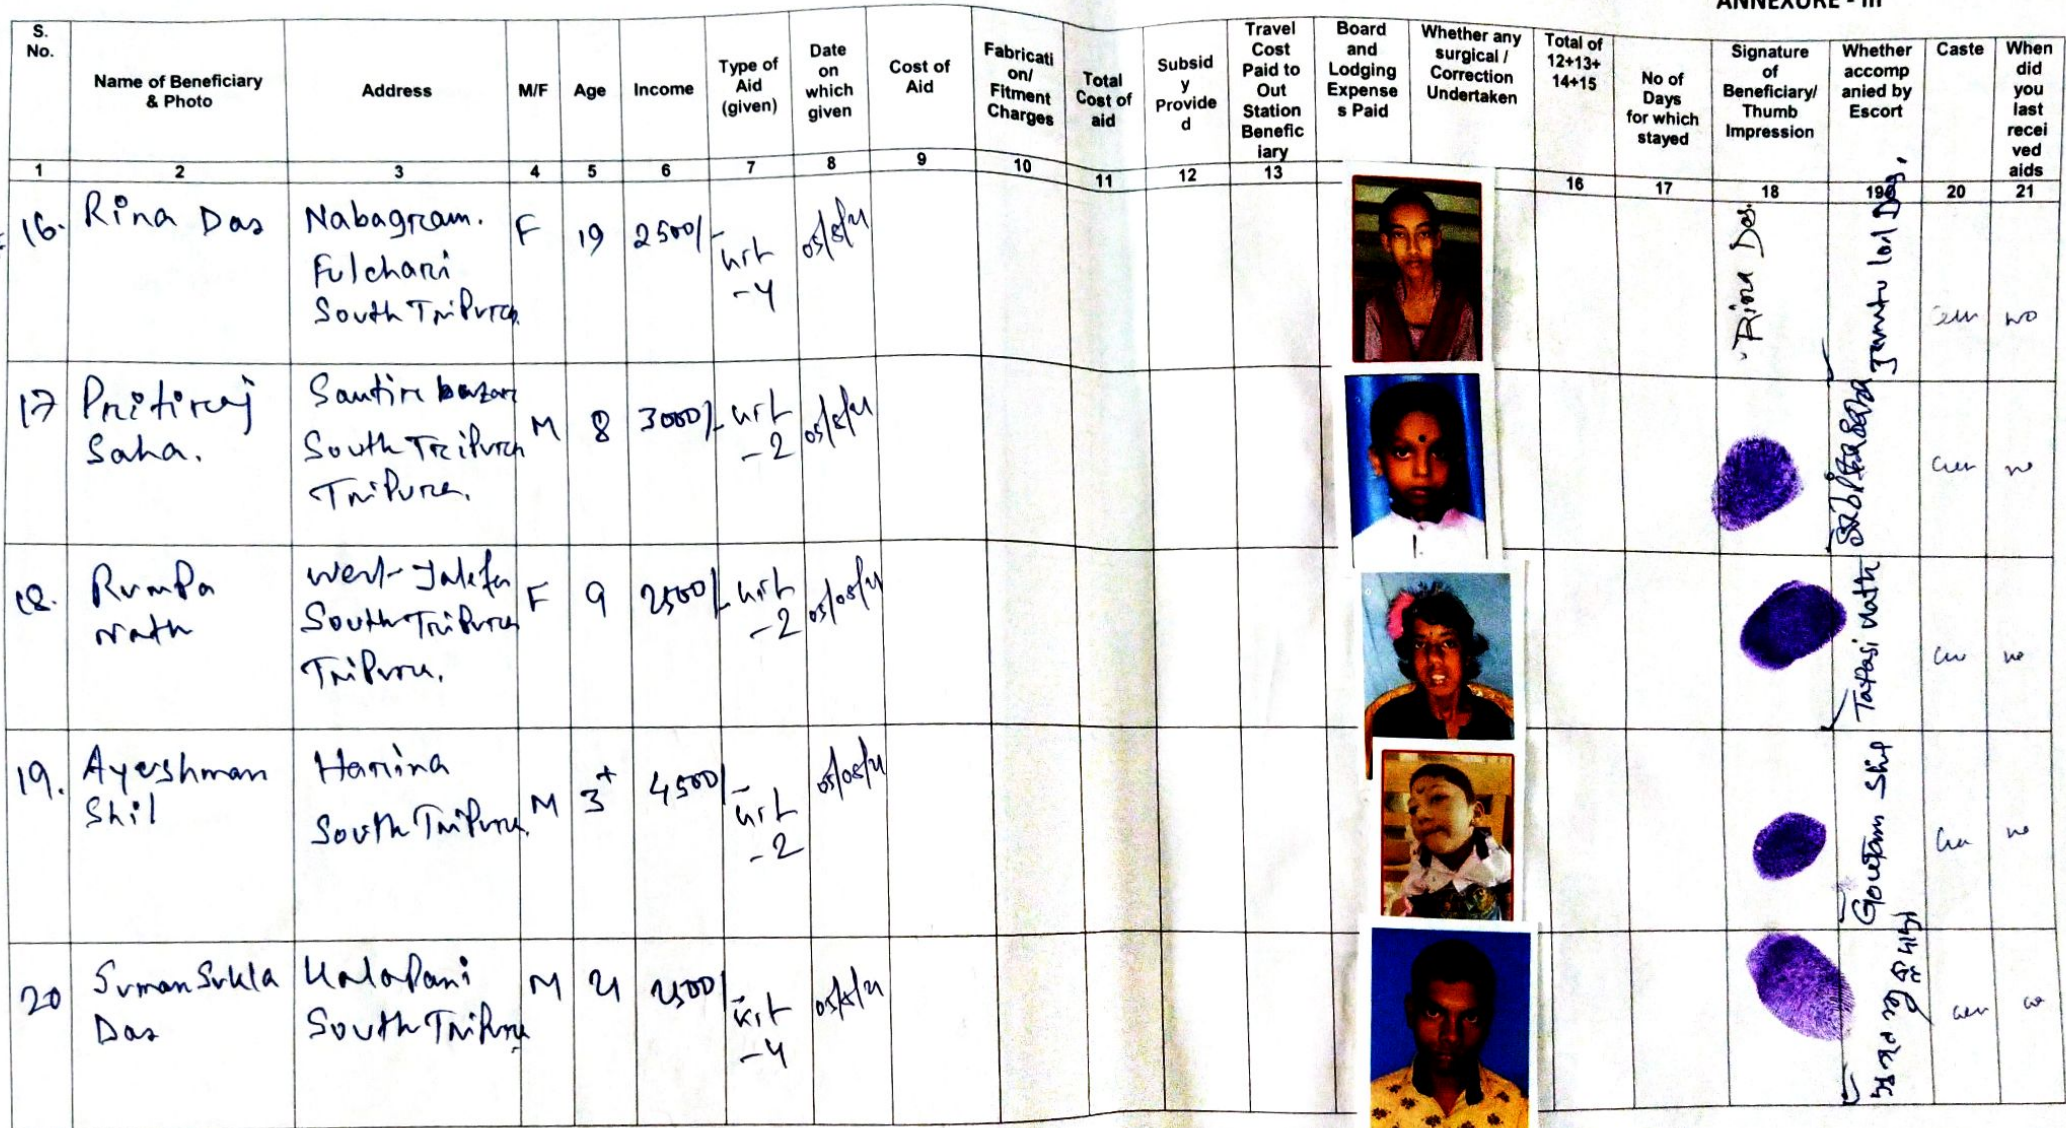 ANNEXURE - III
S. No.
Name of Beneficiary & Photo
Address
M/F
Age
Income
Type of Aid (given)
Date on which given
Cost of Aid
Fabricati on/ Fitment Charges
Total Cost of aid
Subsid y Provide d
Travel Cost Paid to Out Station Benefic iary
Board and Lodging Expense s Paid
Whether any surgical / Correction Undertaken
Total of 12+13+ 14+15
No of Days for which stayed
Signature of Beneficiary/ Thumb Impression
Whether accomp anied by Escort
Caste
When did you last recei ved aids
1 2 3 4 5 6 7 8 9 10 11 12 13 16 17 18 19 20 21
16. Rina Das
Nabagram.
Fulchari
South Tripura
F 19 2500/-
kit
-4
05/8/21
Rina Das.
Das.
no
17 Pritiraj
Saha.
Santir bazar
South Tripura
Tripura.
M 8 3000/- kit
-2
05/8/21
no
18. Rumpa
Nath
West
South Tripura
Tripura.
F 9 2500/- kit
-2
05/08/21
Tapasi Nath
no
19. Ayushman
Shil
Harina
South Tripura
M 3+ 4500/-
kit
-2
05/08/21
Goutam Shil
no
20 Suman Sukla
Das
Kalapani
South Tripura
M 21 2500/-
kit
-4
05/8/21